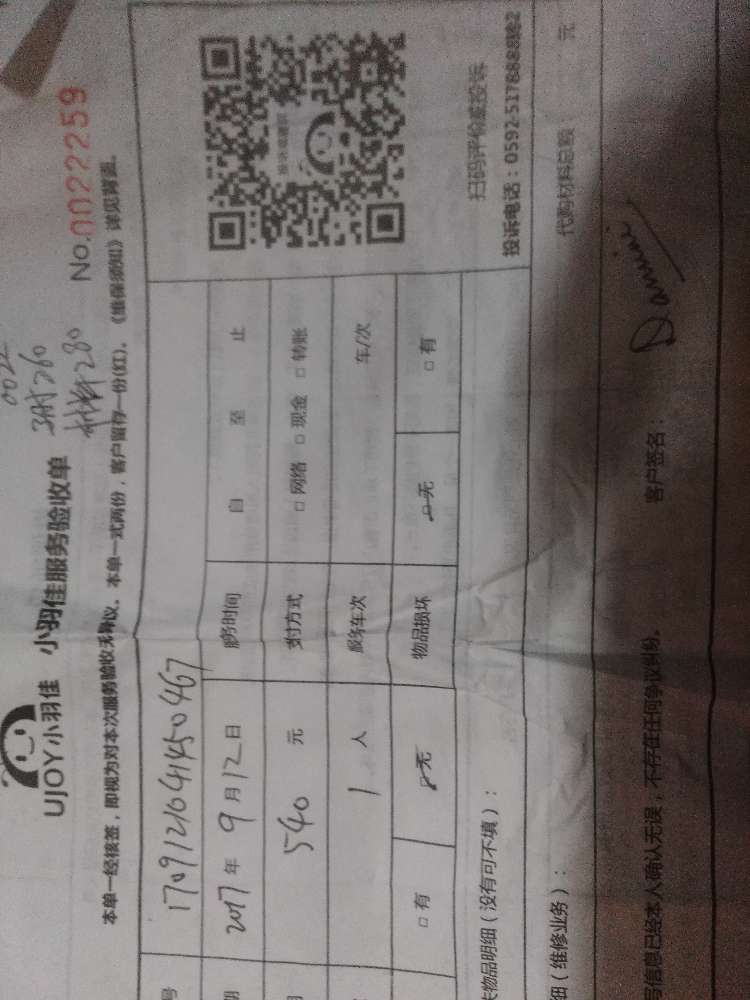 0022
3时260
材料280
UJOY小羽佳 小羽佳服务验收单 No.0022259
本单一经核签，即视为对本次服务验收无异议。本单一式两份，客户留存一份(红)。《维保须知》详见背面。
号 170912104145 0467
期 2017 年 9 月 12 日 服务时间 自 至 止
540 元 支付方式 □ 网络 □ 现金 □ 转账
1 人 服务车次 车/次
□ 有 □ 无 物品损坏 □ 无 □ 有
失物品明细（没有可不填）：
扫码评价或投诉
投诉电话：0592-5178888转2
细（维修业务）： 代购材料总额： 元
写信息已经本人确认无误，不存在任何争议纠纷。 客户签名：